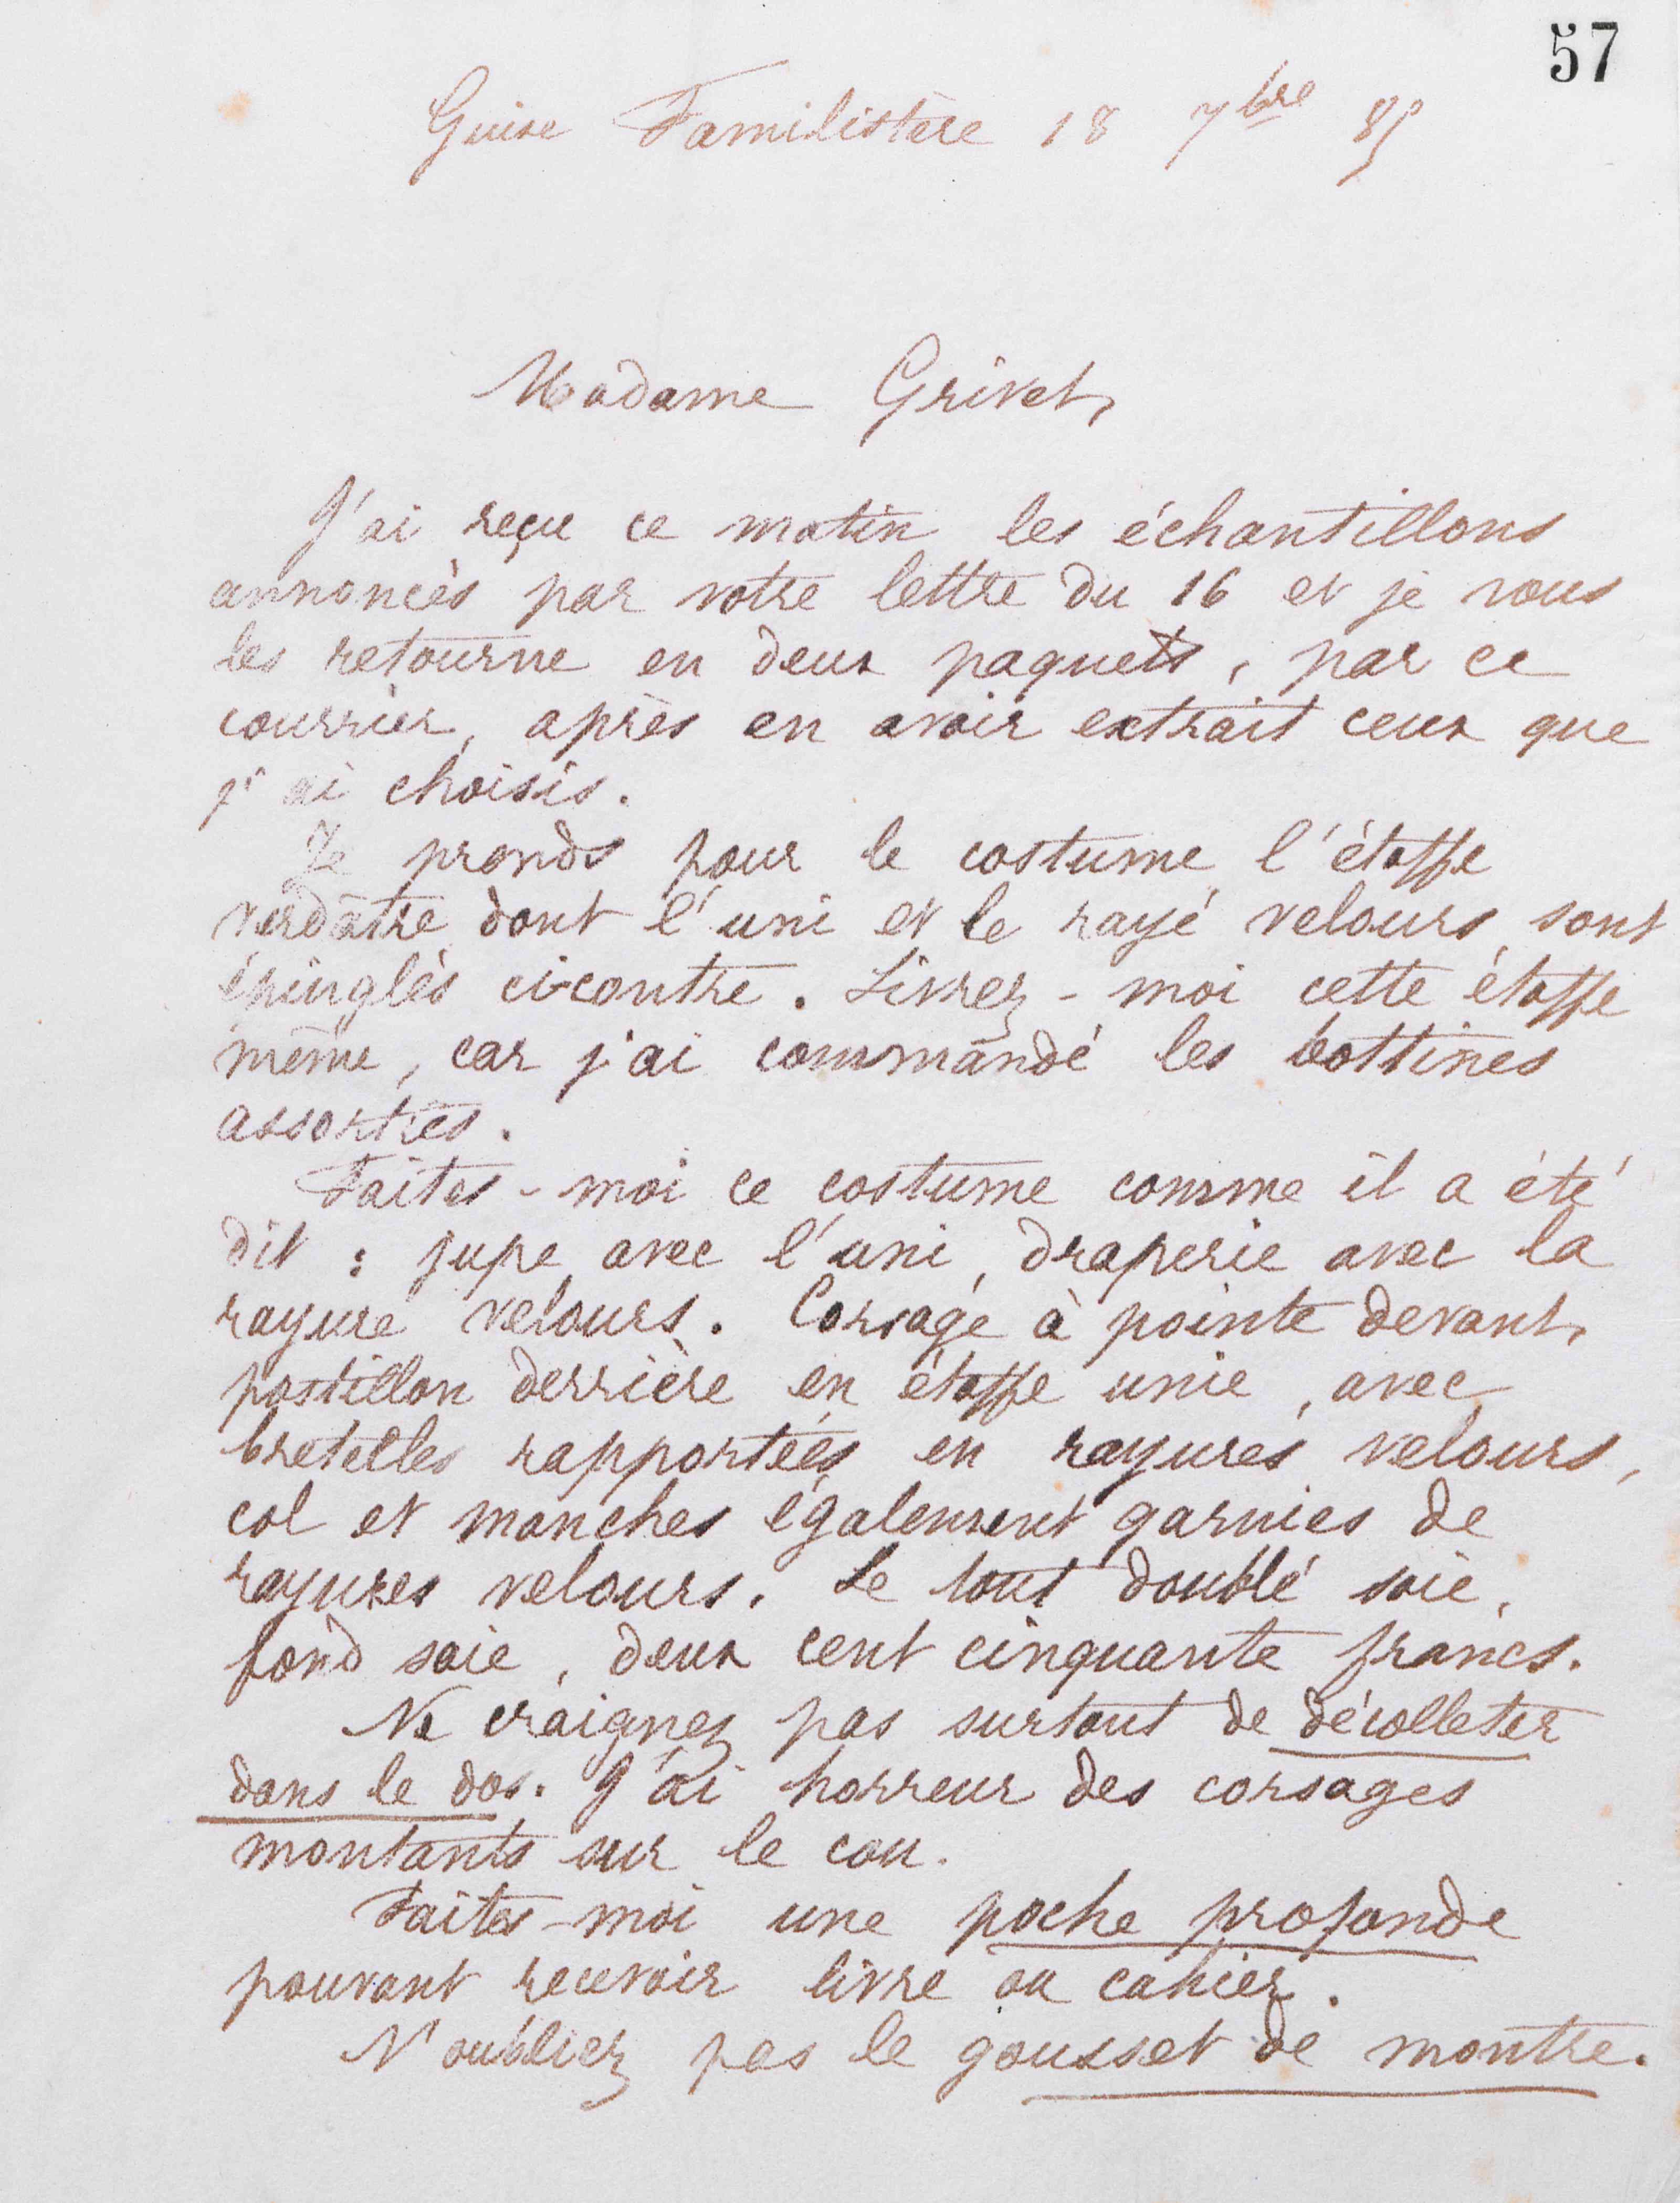 57
Guise Familistère 18 7bre 85
Madame Grivet,
J'ai reçu ce matin les échantillons
annoncés par votre lettre du 16 et je vous
les retourne en deux paquets, par ce
courrier, après en avoir extrait ceux que
j'ai choisis.
Je prends pour le costume l'étoffe
verdâtre dont l'uni et le rayé velours sont
épinglés ci-contre. Livrez-moi cette étoffe
même, car j'ai commandé les bottines
assorties.
Faites-moi ce costume comme il a été
dit : jupe avec l'uni, draperie avec la
rayure velours. Corsage à pointe devant,
postillon derrière en étoffe unie, avec
bretelles rapportées en rayures velours,
col et manches également garnies de
rayures velours. Le tout doublé soie,
fond soie, deux cent cinquante francs.
Ne craignez pas surtout de décolleter
dans le dos. J'ai horreur des corsages
montants sur le cou.
Faites-moi une poche profonde
pouvant recevoir livre ou cahier.
N'oubliez pas le gousset de montre.